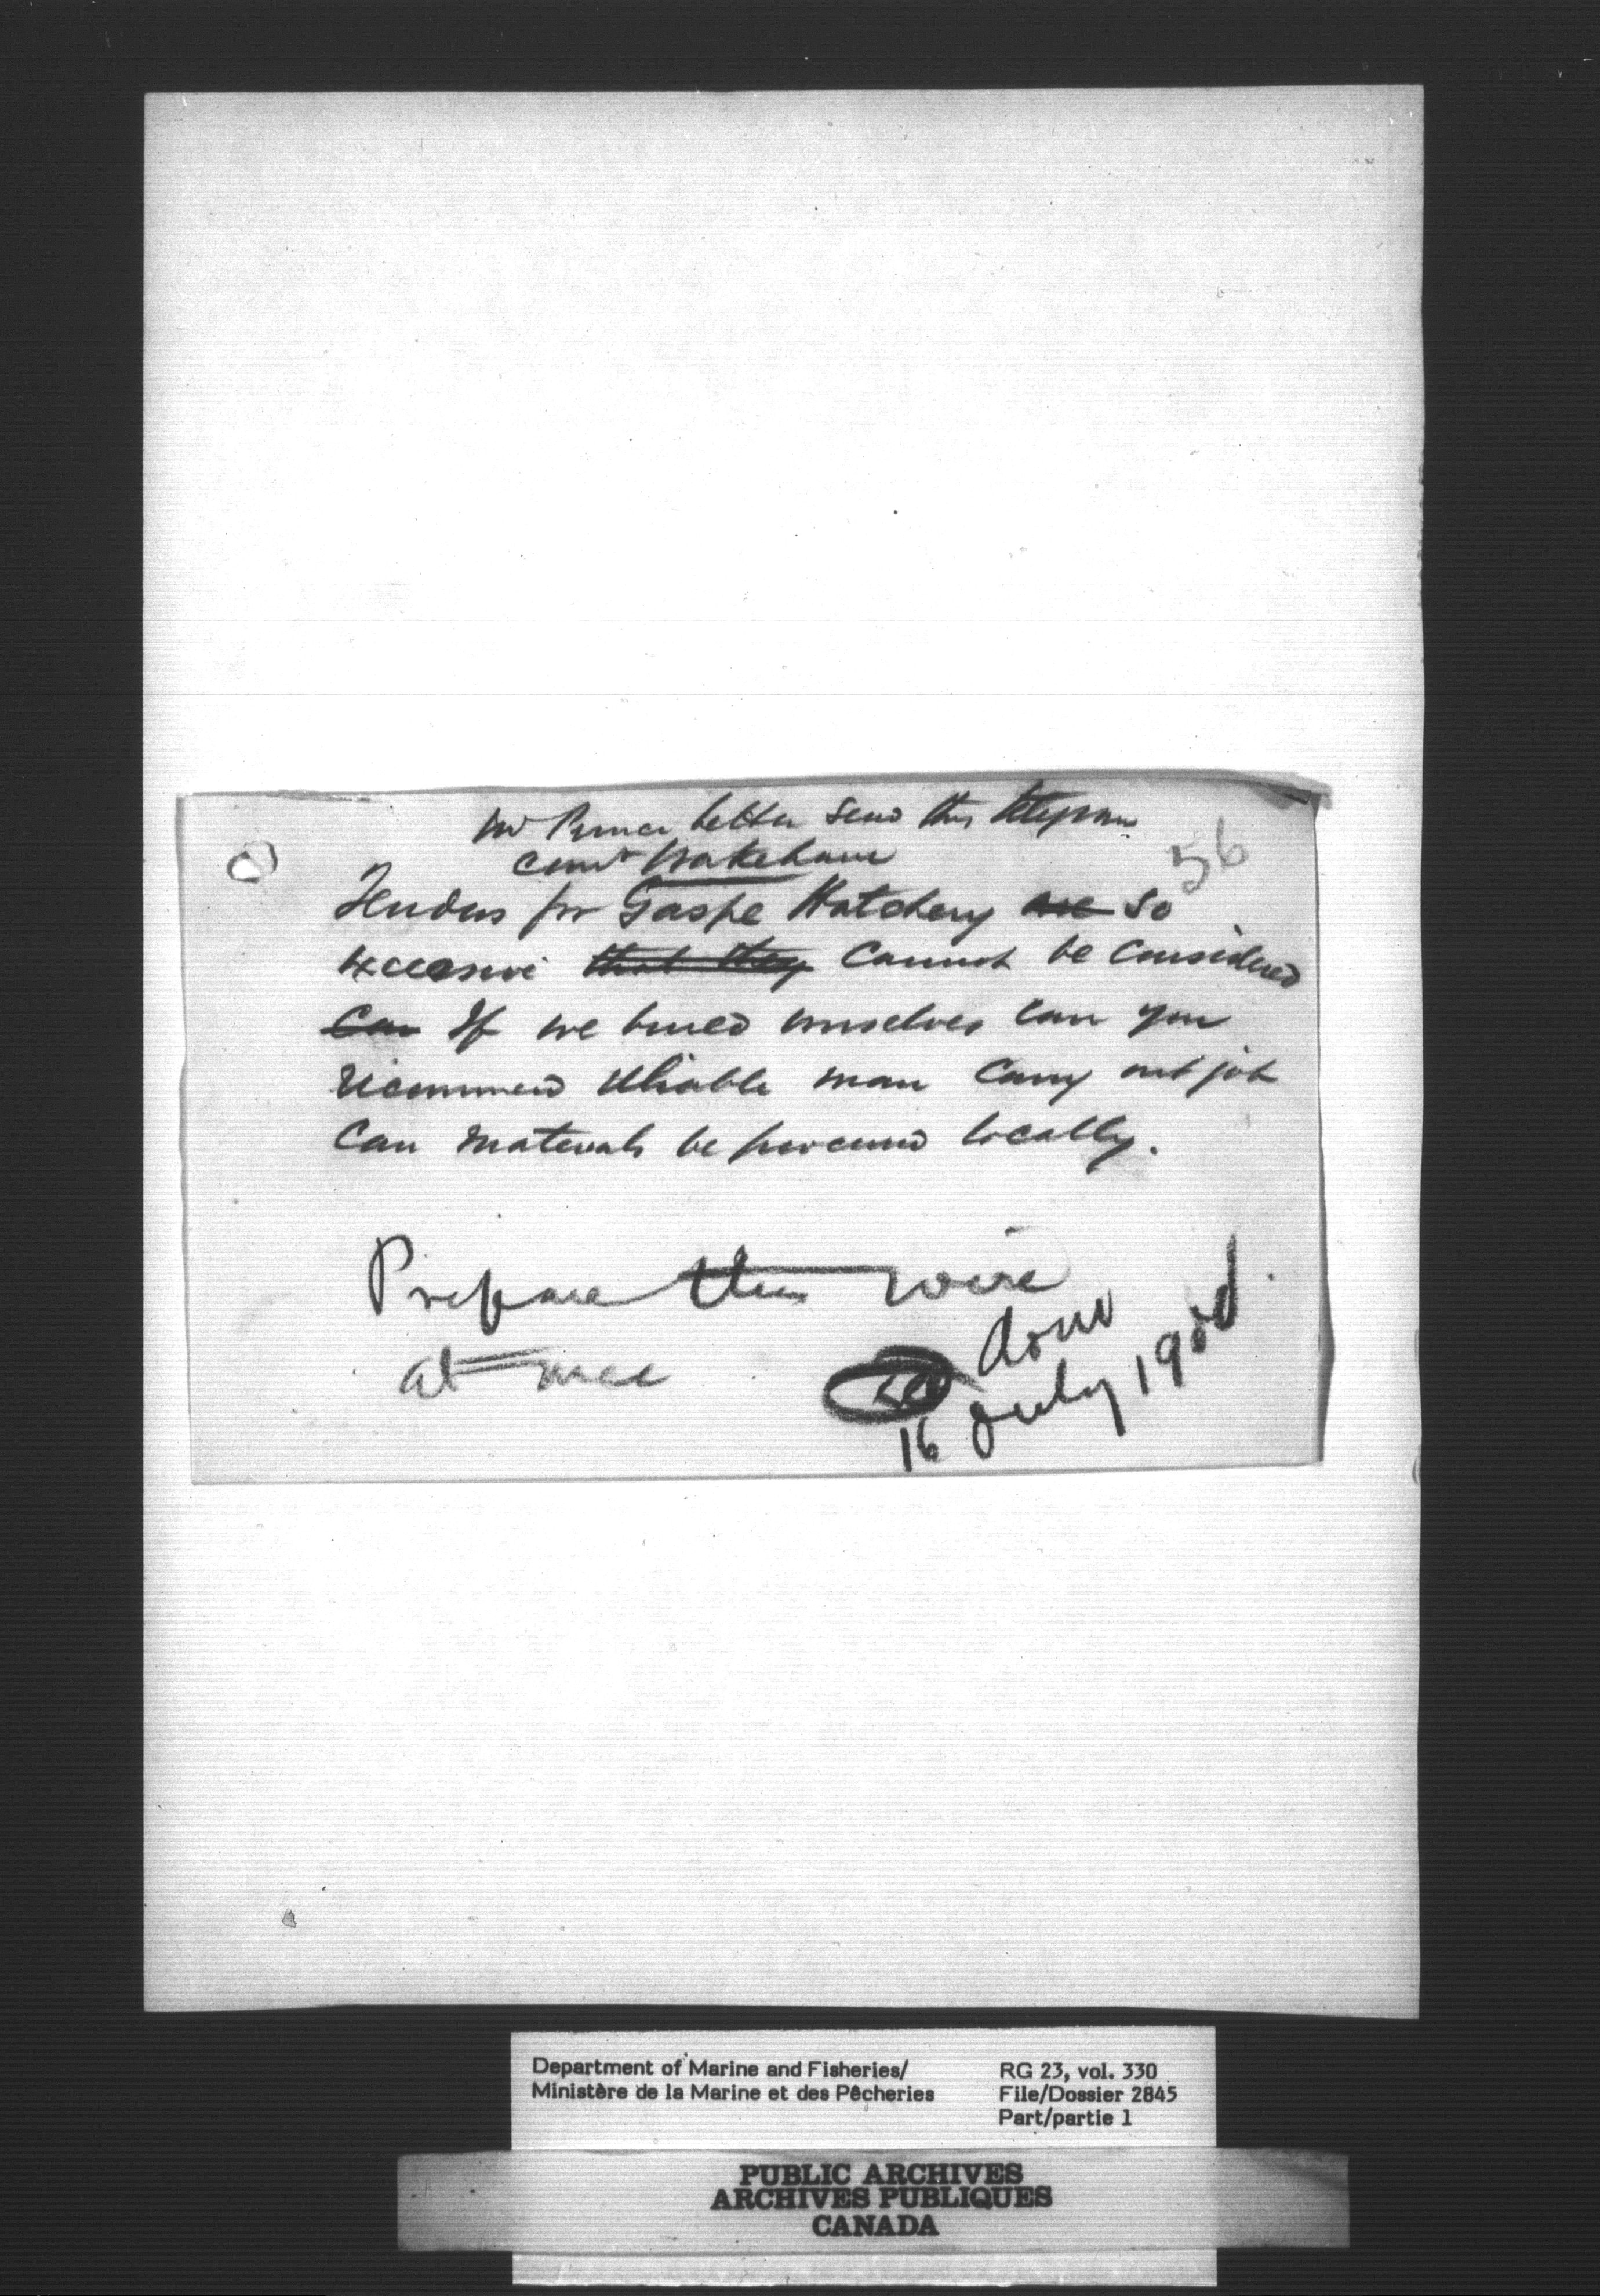 Mr Prince better send this telegram
Comr Wakeham
56
Tenders for Gaspe Hatchery are so
excessive that they cannot be considered
Can If we build ourselves can you
recommend reliable man carry out job
Can materials be procured locally.
Prepare this wire
at once
done
16 July 190
Department of Marine and Fisheries/
Ministère de la Marine et des Pêcheries
RG 23, vol. 330
File/Dossier 2845
Part/partie 1
PUBLIC ARCHIVES
ARCHIVES PUBLIQUES
CANADA